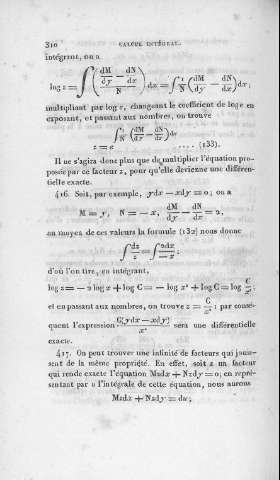 310 CALCUL INTÉGRAL.
intégrant, on a
log z = ∫ ( (dM/dy − dN/dx) / N ) dx = ∫ 1/N (dM/dy − dN/dx) dx;
multipliant par log e, changeant le coefficient de log e en
exposant, et passant aux nombres, on trouve
z = e^{∫ 1/N (dM/dy − dN/dx) dx} .... (133).
Il ne s'agira donc plus que de multiplier l'équation pro-
posée par ce facteur z, pour qu'elle devienne une différen-
tielle exacte.
416. Soit, par exemple, ydx − xdy = 0; on a
M = y, N = − x, dM/dy − dN/dx = 2,
au moyen de ces valeurs la formule (132) nous donne
∫ dz/z = ∫ 2dx/−x;
d'où l'on tire, en intégrant,
log z = − 2 log x + log C = − log x² + log C = log C/x²;
et en passant aux nombres, on trouve z = C/x²; par consé-
quent l'expression C(ydx − xdy)/x² sera une différentielle
exacte.
417. On peut trouver une infinité de facteurs qui jouis-
sent de la même propriété. En effet, soit z un facteur
qui rende exacte l'équation Mzdx + Nzdy = 0; en repré-
sentant par u l'intégrale de cette équation, nous aurons
Mzdx + Nzdy = du;